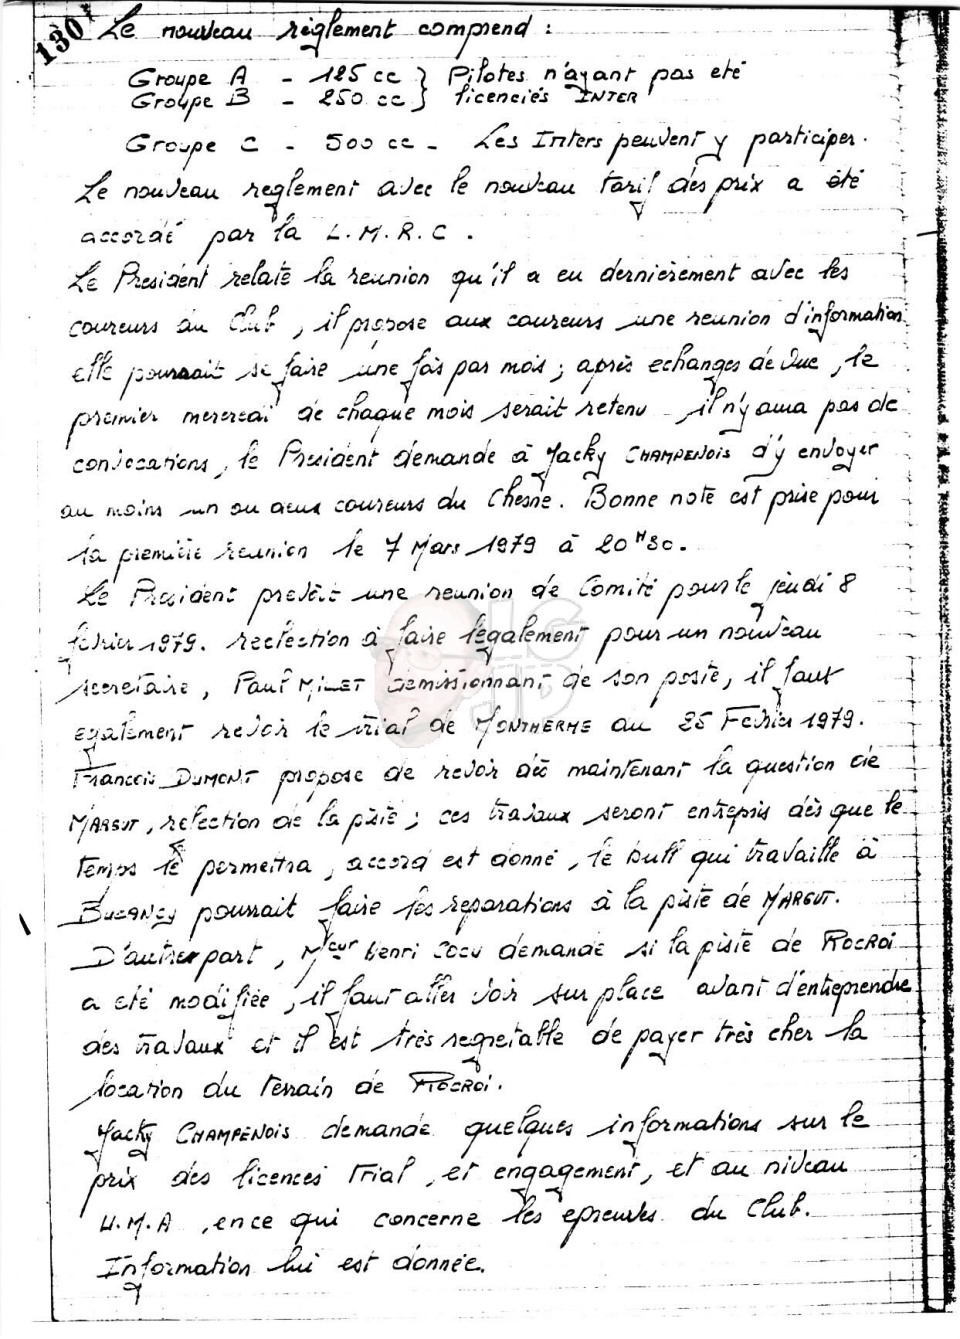 130
Le nouveau règlement comprend :
Groupe A - 125 cc } Pilotes n'ayant pas eté
Groupe B - 250 cc } licenciés INTER
Groupe C - 500 cc - Les Inters peuvent y participer.
Le nouveau reglement avec le nouveau tarif des prix a été
accordé par la L.M.R.C.
Le President relate la reunion qu'il a eu dernièrement avec les
coureurs du Club, il propose aux coureurs une reunion d'information
elle pourrait se faire une fois par mois ; après echanges de vue, le
premier mercredi de chaque mois serait retenu - il n'y aura pas de
convocations, le President demande à Jacky CHAMPENOIS d'y envoyer
au moins un ou deux coureurs du Chesne. Bonne note est prise pour
la première reunion le 7 Mars 1979 à 20H30.
Le President prevoit une reunion de Comité pour le jeudi 8
fevrier 1979. reelection à faire legalement pour un nouveau
secretaire, Paul MILET demissionnant de son poste, il faut
egalement revoir le trial de MONTHERME au 25 Fevrier 1979.
Francois DUMONT propose de revoir dès maintenant la question de
MARGUT, refection de la piste ; ces travaux seront entrepris dès que le
temps le permettra, accord est donné, le bull qui travaille à
BUZANCY pourrait faire les reparations à la piste de MARGUT.
D'autre part, Mieur Henri COCU demande si la piste de ROCROI
a eté modifiée, il faut aller voir sur place avant d'entreprendre
des travaux et il est très regretable de payer très cher la
location du terrain de ROCROI.
Jacky CHAMPENOIS demande quelques informations sur le
prix des licences Trial, et engagement, et au niveau
U.M.A, en ce qui concerne les epreuves du Club.
Information lui est donnée.